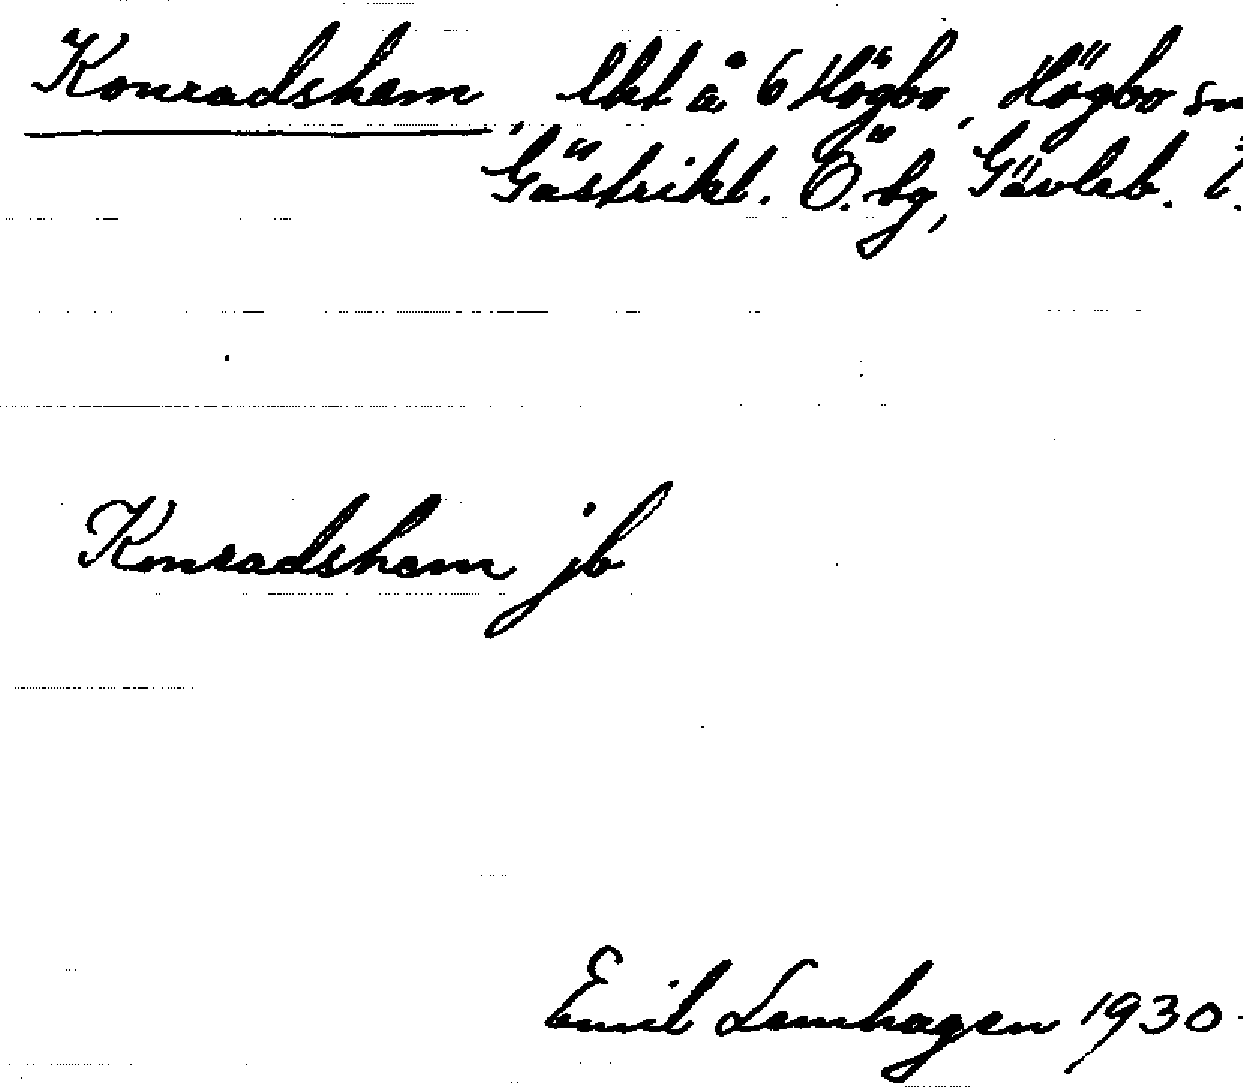 Konradshem, lht å 6 Högbo, Högbo sn
Gästrikl. Ö. tg, Gävleb. l.
Konradshem jb
Emil Lemhagen 1930